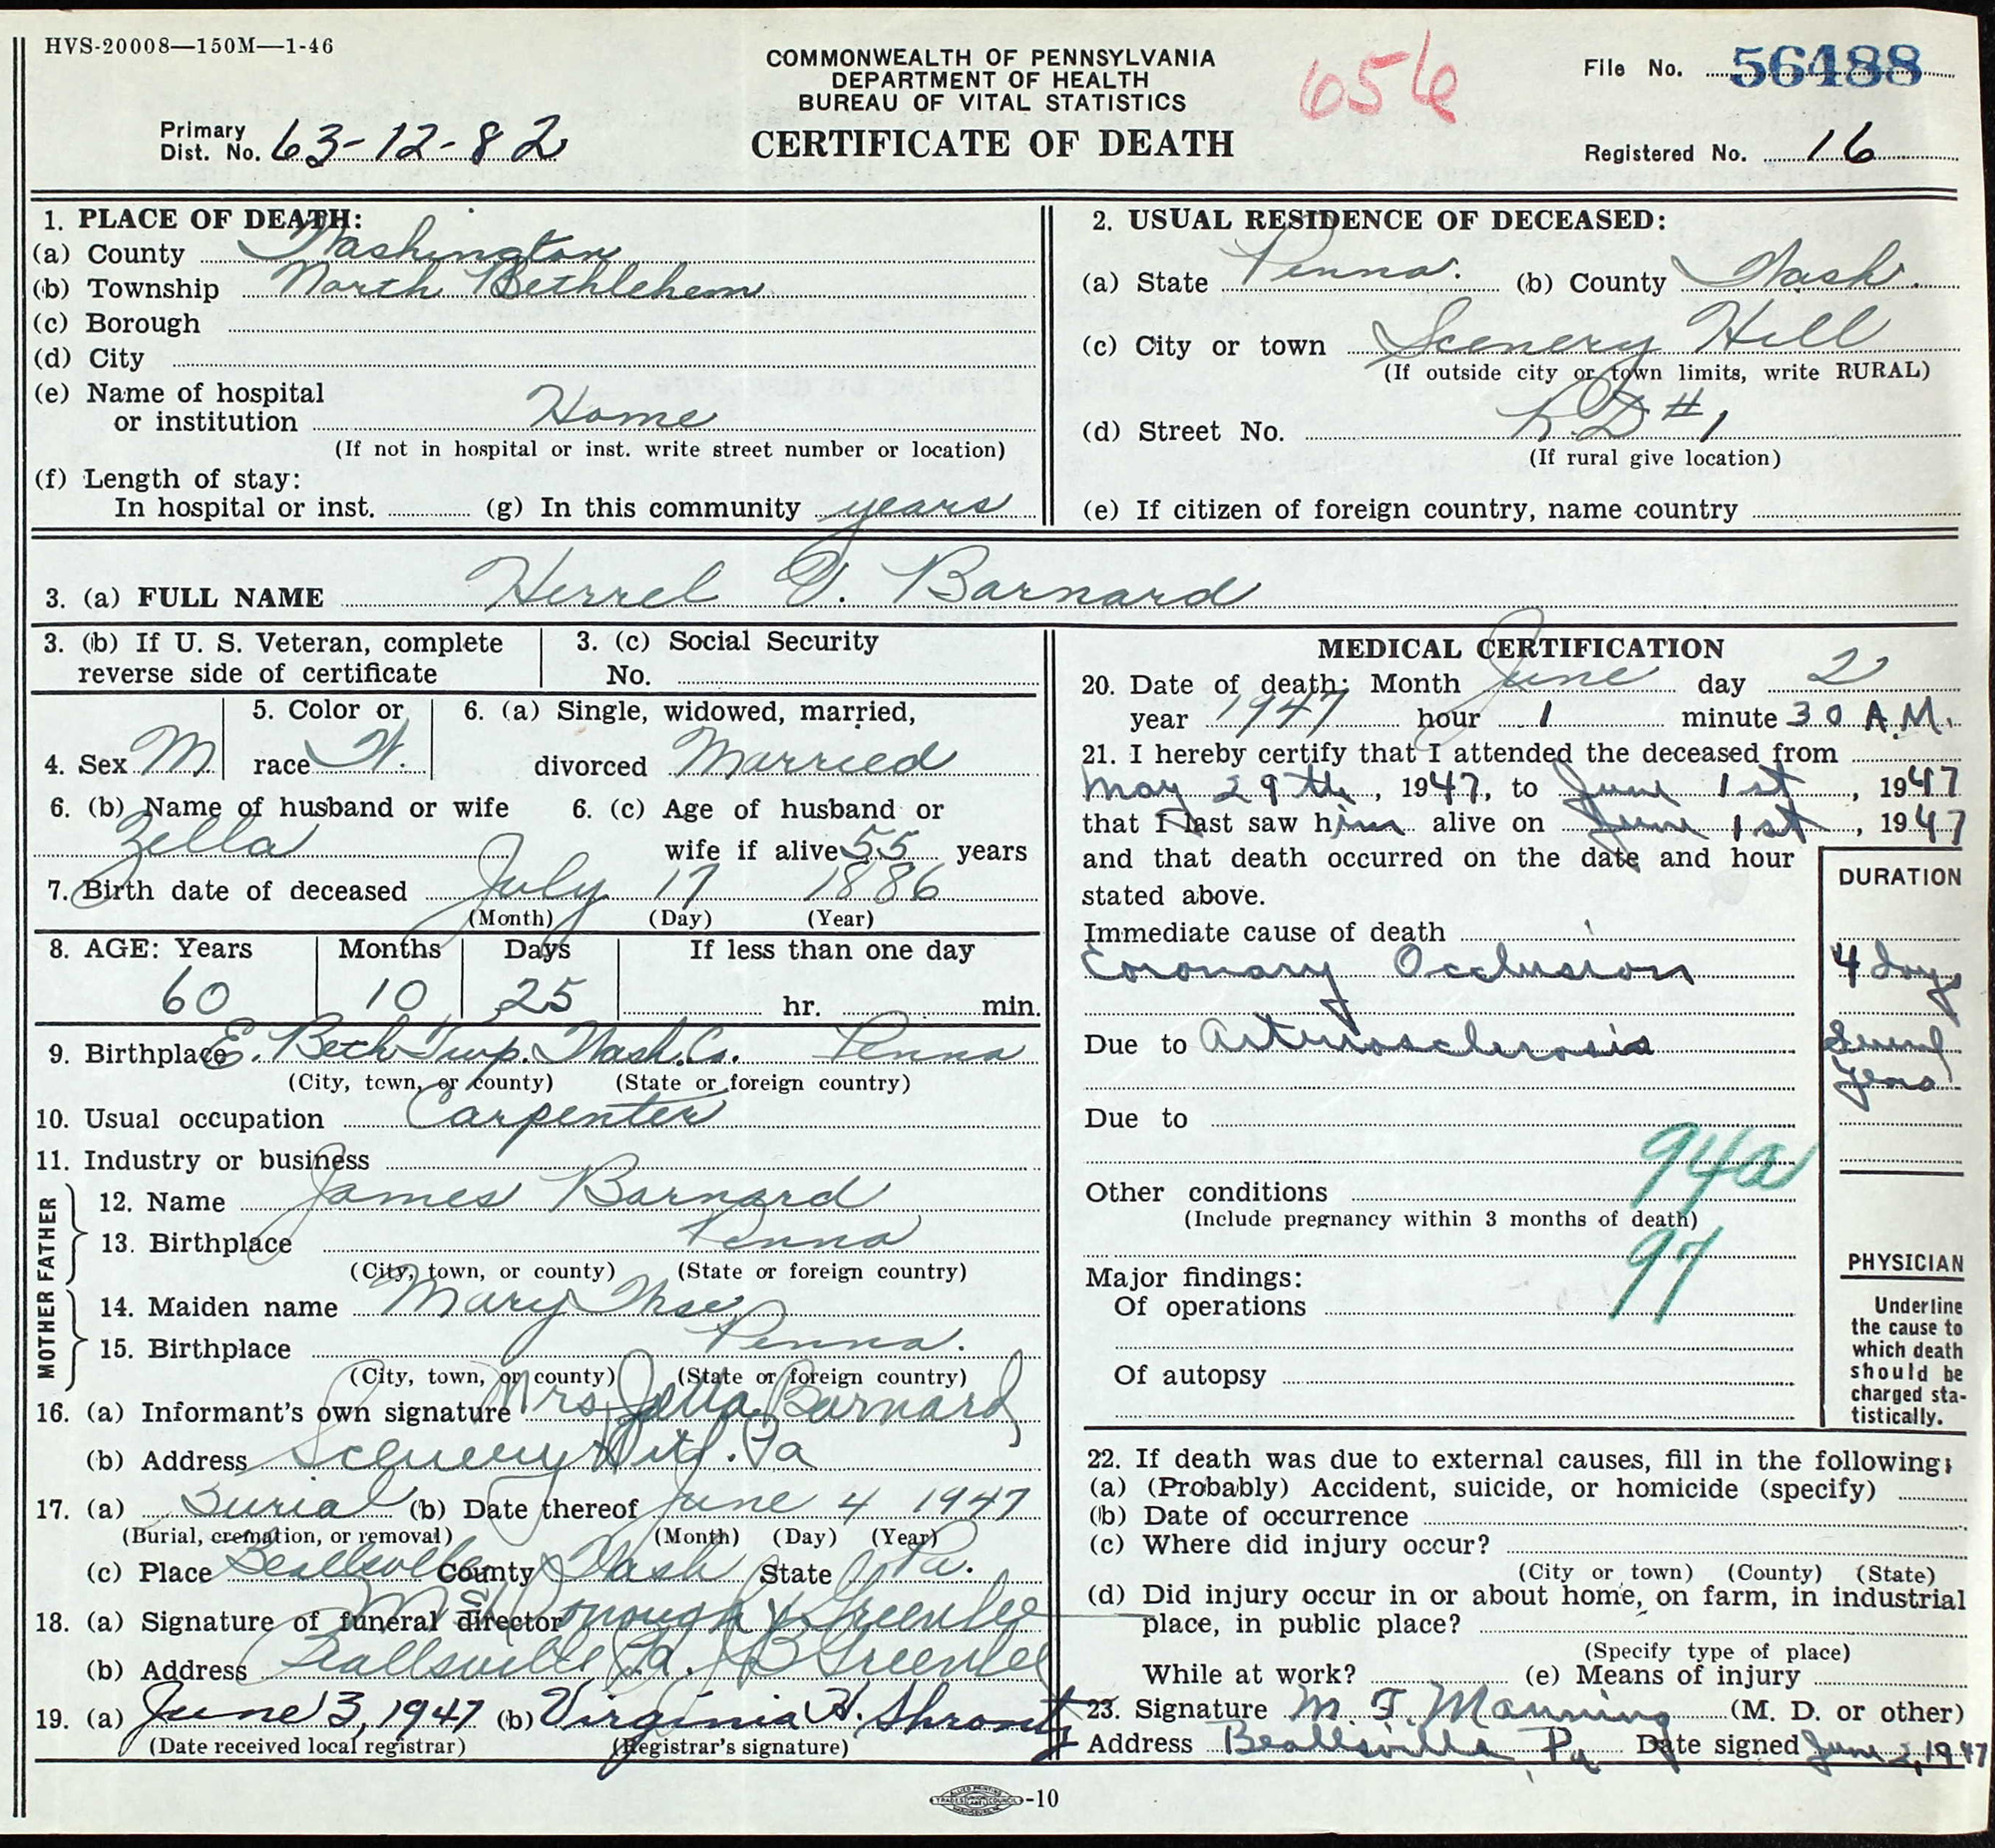 HVS-20008—150M—1-46
COMMONWEALTH OF PENNSYLVANIA
DEPARTMENT OF HEALTH
BUREAU OF VITAL STATISTICS
CERTIFICATE OF DEATH
656
File No. 56488
Primary Dist. No. 63-12-82
Registered No. 16
1. PLACE OF DEATH:
(a) County Washington
(b) Township North Bethlehem
(c) Borough
(d) City
(e) Name of hospital
or institution Home
(If not in hospital or inst. write street number or location)
(f) Length of stay:
In hospital or inst. (g) In this community years
2. USUAL RESIDENCE OF DECEASED:
(a) State Penna. (b) County Wash.
(c) City or town Scenery Hill
(If outside city or town limits, write RURAL)
(d) Street No. R.D #1
(If rural give location)
(e) If citizen of foreign country, name country
3. (a) FULL NAME Herrel Barnard
3. (b) If U. S. Veteran, complete
reverse side of certificate
3. (c) Social Security
No.
4. Sex M.
5. Color or
race W.
6. (a) Single, widowed, married,
divorced Married
6. (b) Name of husband or wife
Zella
6. (c) Age of husband or
wife if alive 55 years
7. Birth date of deceased July 17 1886
(Month) (Day) (Year)
8. AGE: Years Months Days If less than one day
60 10 25 hr. min.
9. Birthplace E. Beth Twp. Wash. Co. Penna
(City, town, or county) (State or foreign country)
10. Usual occupation Carpenter
11. Industry or business
FATHER
12. Name James Barnard
13. Birthplace Penna
(City, town, or county) (State or foreign country)
MOTHER
14. Maiden name Mary
15. Birthplace Penna.
(City, town, or county) (State or foreign country)
16. (a) Informant's own signature Mrs Zella Barnard
(b) Address Scenery Hill. Pa
17. (a) Burial (b) Date thereof June 4 1947
(Burial, cremation, or removal) (Month) (Day) (Year)
(c) Place Beallsville County Wash State Pa.
18. (a) Signature of funeral director McDonough & Greenlee
(b) Address Beallsville Pa. J B Greenlee
19. (a) June 3, 1947 (b) Virginia H. Shrontz
(Date received local registrar) (Registrar's signature)
MEDICAL CERTIFICATION
20. Date of death: Month June day 2
year 1947 hour 1 minute 30 A.M.
21. I hereby certify that I attended the deceased from
May 29th, 1947, to June 1st, 1947
that I last saw him alive on June 1st, 1947
and that death occurred on the date and hour
stated above.
DURATION
Immediate cause of death
Coronary Occlusion 4 days
Due to Arteriosclerosis Several
years
Due to
94a
Other conditions
(Include pregnancy within 3 months of death)
97
Major findings:
Of operations
Of autopsy
PHYSICIAN
Underline
the cause to
which death
should be
charged sta-
tistically.
22. If death was due to external causes, fill in the following:
(a) (Probably) Accident, suicide, or homicide (specify)
(b) Date of occurrence
(c) Where did injury occur?
(City or town) (County) (State)
(d) Did injury occur in or about home, on farm, in industrial
place, in public place?
(Specify type of place)
While at work? (e) Means of injury
23. Signature M. F. Manning (M. D. or other)
Address Beallsville Pa Date signed June 2, 1947
-10